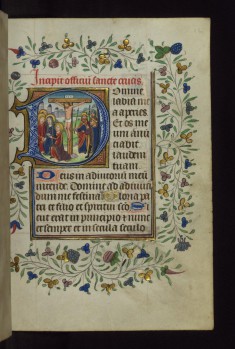 Incipit officiu sancte crucis.
Domine
labia me
a aperies.
Et os me
um annu
ciabit
laudem
tuam.
Deus in adiutoriu meu
intende. Domine ad adiuua
dum me festina. Gloria pa
tri et filio et spiritui sco. Si
cut erat in principio et nunc
et semper et in secula seculo